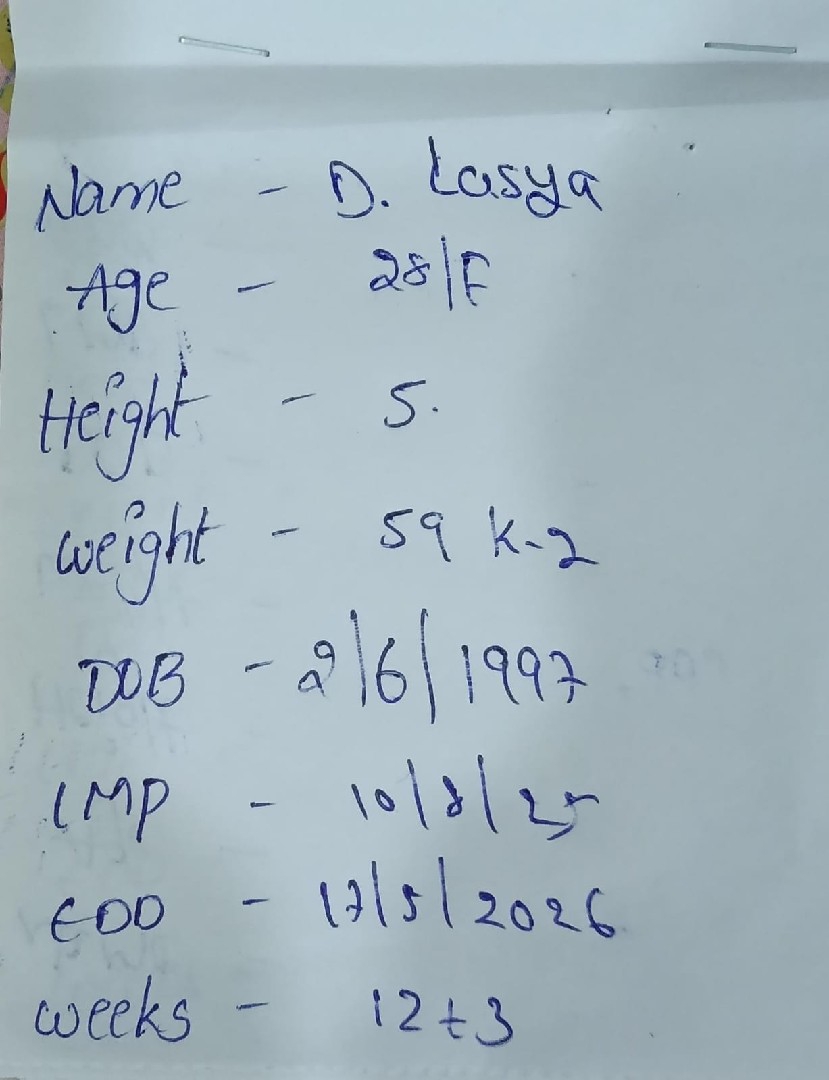 Name - D. Lasya
Age - 28/F
Height - 5.
weight - 59 K-2
DOB - 2/6/1997
LMP - 10/8/25
EDD - 17/5/2026
weeks - 12+3